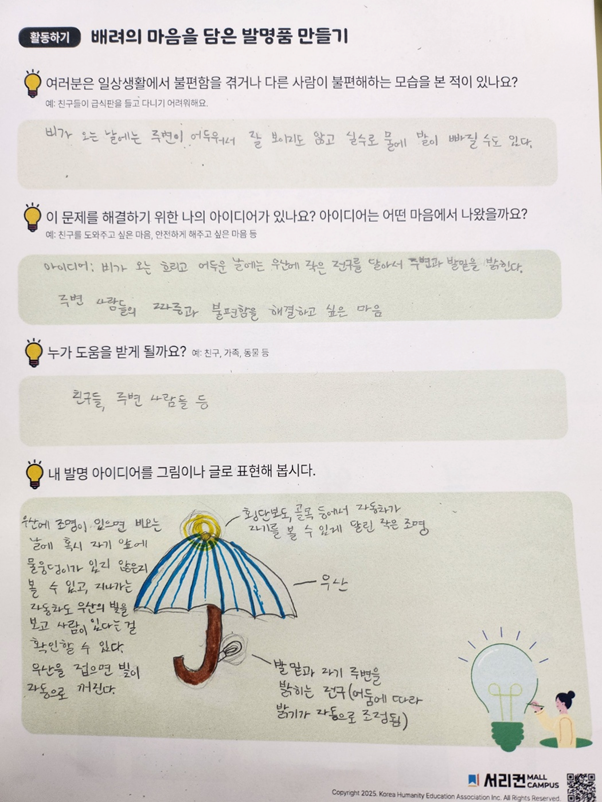 활동하기 배려의 마음을 담은 발명품 만들기
여러분은 일상생활에서 불편함을 겪거나 다른 사람이 불편해하는 모습을 본 적이 있나요?
예: 친구들이 급식판을 들고 다니기 어려워해요.
비가 오는 날에는 주변이 어두워서 잘 보이지도 않고 실수로 물에 발이 빠질 수도 있다.
이 문제를 해결하기 위한 나의 아이디어가 있나요? 아이디어는 어떤 마음에서 나왔을까요?
예: 친구를 도와주고 싶은 마음, 안전하게 해주고 싶은 마음 등
아이디어: 비가 오는 흐리고 어두운 날에는 우산에 작은 전구를 달아서 주변과 발밑을 밝힌다.
주변 사람들의 짜증과 불편함을 해결하고 싶은 마음
누가 도움을 받게 될까요? 예: 친구, 가족, 동물 등
친구들, 주변 사람들 등
내 발명 아이디어를 그림이나 글로 표현해 봅시다.
우산에 조명이 있으면 비오는
날에 혹시 자기 앞에
물웅덩이가 있지 않은지
볼 수 있고, 지나가는
자동차도 우산의 빛을
보고 사람이 있다는 걸
확인할 수 있다.
우산을 접으면 빛이
자동으로 꺼진다.
횡단보도, 골목 등에서 자동차가
자기를 볼 수 있게 달린 작은 조명
우산
발밑과 자기 주변을
밝히는 전구(어둠에 따라
밝기가 자동으로 조정됨)
서리컨 MALL CAMPUS
Copyright 2025. Korea Humanity Education Association Inc. All Rights Reserved.